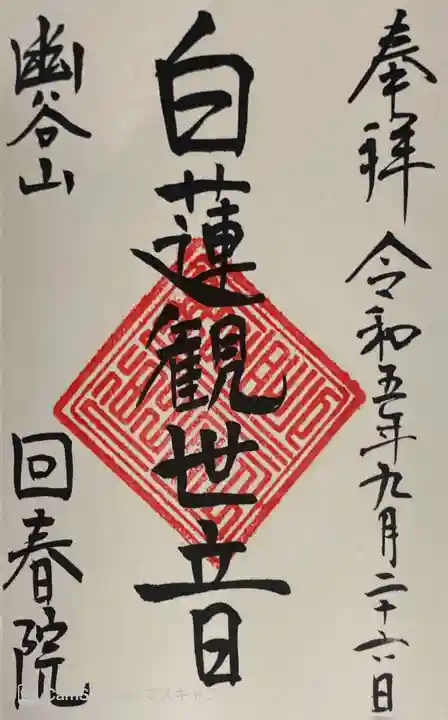 奉拝 令和五年九月二十六日
白蓮観世音
幽谷山
回春院